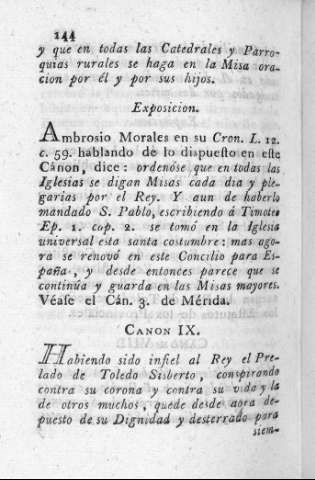 144
y que en todas las Catedrales y Parro-
quias rurales se haga en la Misa ora-
cion por él y por sus hijos.
Exposicion.
Ambrosio Morales en su Cron. L. 12.
c. 59. hablando de lo dispuesto en este
Cánon, dice: ordenóse que en todas las
Iglesias se digan Misas cada dia y ple-
garias por el Rey. Y aun de haberlo
mandado S. Pablo, escribiendo á Timoteo
Ep. 1. cap. 2. se tomó en la Iglesia
universal esta santa costumbre: mas ago-
ra se renovó en este Concilio para Es-
paña, y desde entonces parece que se
continúa y guarda en las Misas mayores.
Véase el Cán. 3. de Mérida.
CANON IX.
Habiendo sido infiel al Rey el Pre-
lado de Toledo Sisberto, conspirando
contra su corona y contra su vida y la
de otros muchos, quede desde aora de-
puesto de su Dignidad y desterrado para
siem-